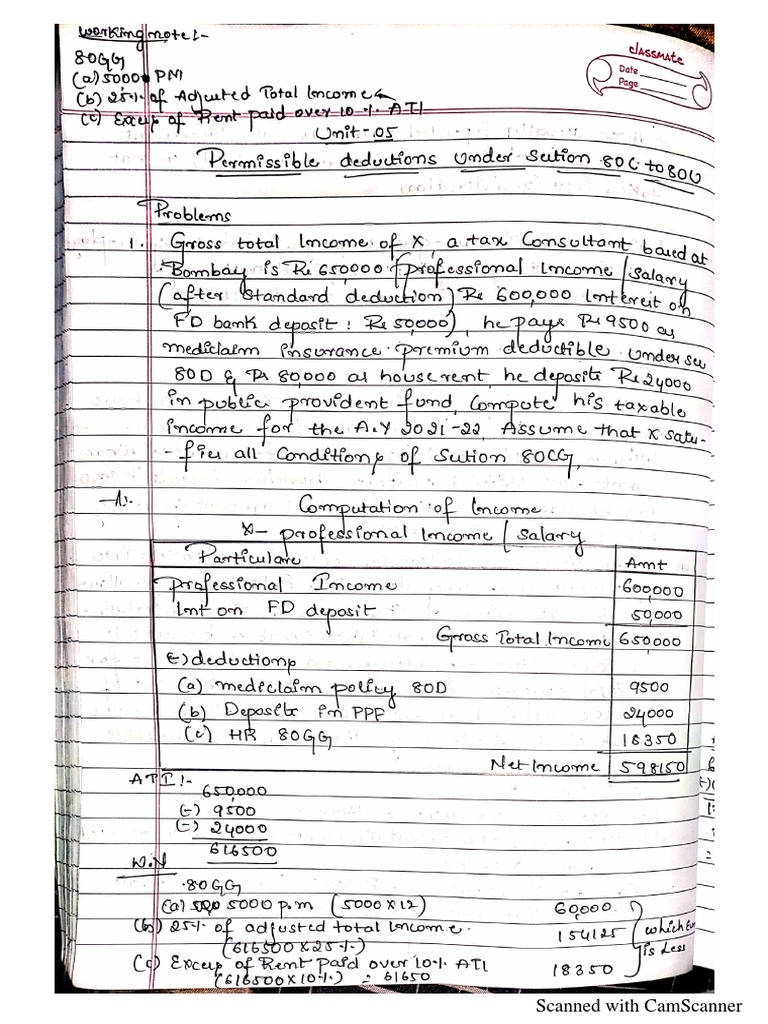 Working note :-
80GG
(a) 5000 PM
(b) 25% of Adjusted Total Income
(c) Excess of Rent paid over 10% ATI
classmate
Date
Page
Unit-05
Permissible deductions under Section 80C to 80U
Problems
1. Gross total Income of X, a tax Consultant based at
Bombay is Rs 650000 (professional Income / salary
(after standard deduction) Rs 600,000 Interest on
FD bank deposit : Rs 50,000), he pays Rs 9500 as
mediclaim insurance premium deductible under sec
80D & Rs 80,000 as house rent, he deposits Rs 24000
in public provident fund, Compute his taxable
income for the A.Y 2021-22, Assume that X satis-
-fies all Conditions of Section 80GG,
Computation of Income
X- professional Income / Salary
Particulars Amt
professional Income 600,000
Int on FD deposit 50,000
Gross Total Income 650,000
(-) deductions
(a) mediclaim policy 80D 9500
(b) Deposits in PPF 24000
(c) HR 80GG 18350
Net Income 598150
ATI :-
650,000
(-) 9500
(-) 24000
616500
W.N
80GG
(a) 5000 p.m (5000 X 12) 60,000
(b) 25% of adjusted total Income. 154125
(616500 X 25%)
which ever is Less
(c) Excess of Rent Paid over 10% ATI 18350
(616500 X 10%) = 61650
Scanned with CamScanner